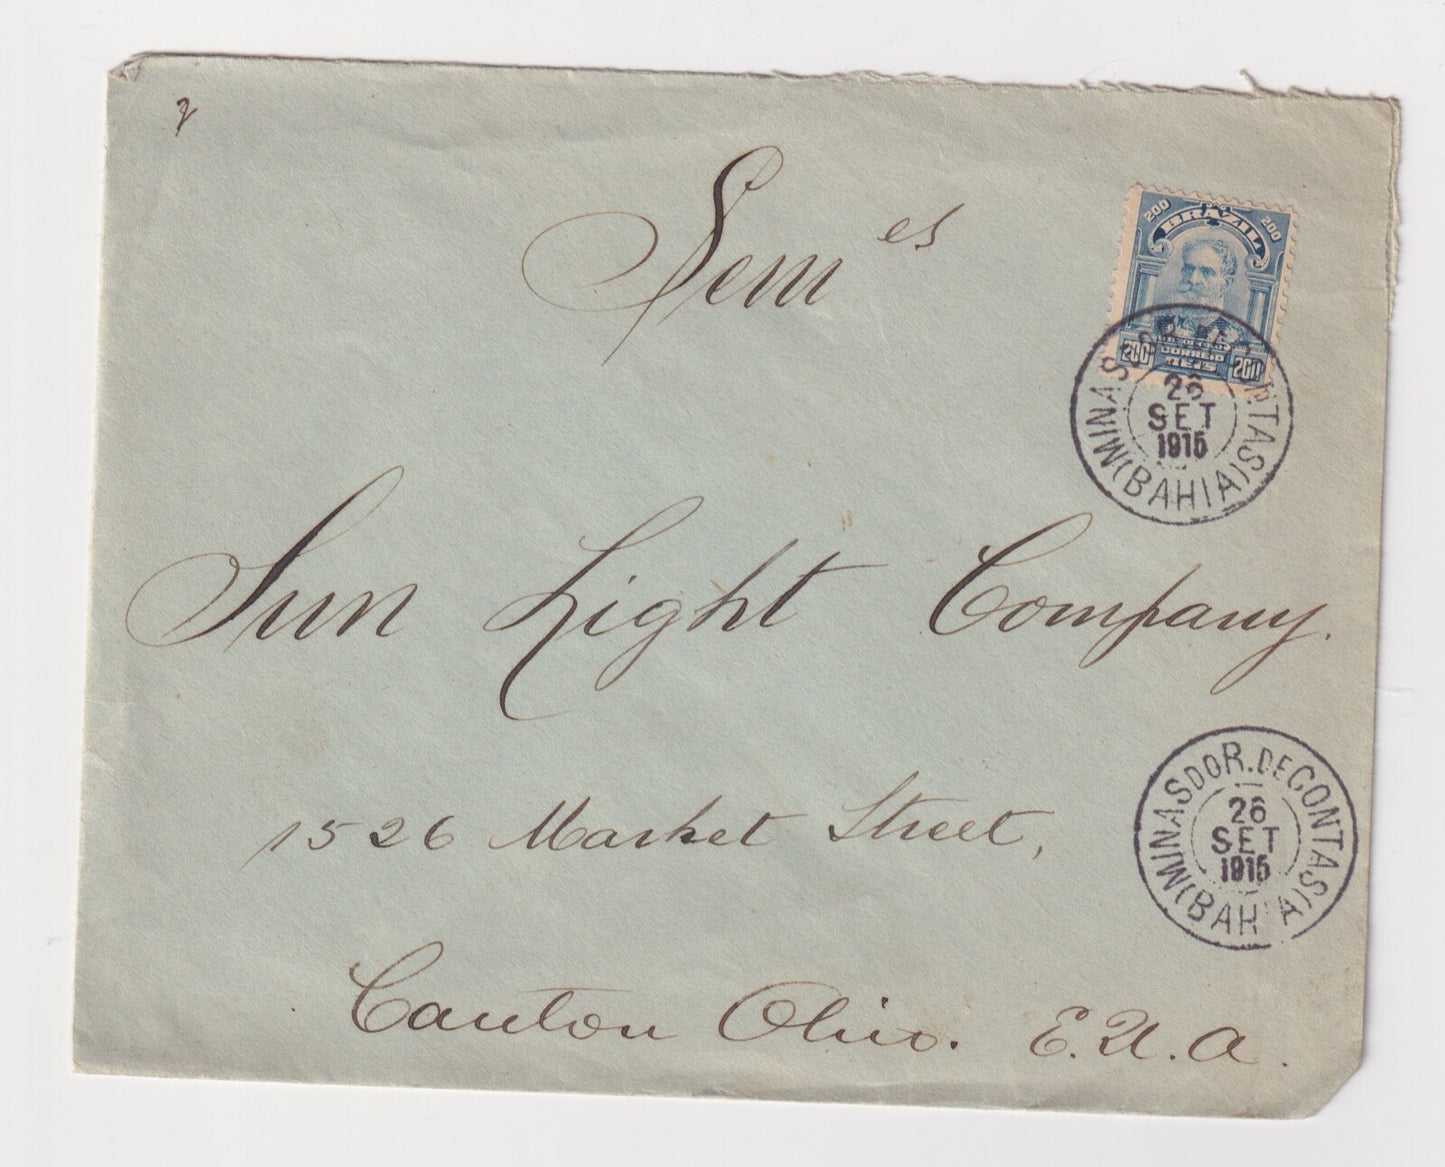 Sem es
200 BRAZIL 200
200 CORREIO 200
REIS
26
SET
1915
MINAS DO R. DE CONTAS
(BAHIA)
Sun Light Company.
1526 Market Street,
MINAS DO R. DE CONTAS
26
SET
1915
(BAHIA)
Canton Ohio. E.U.A.